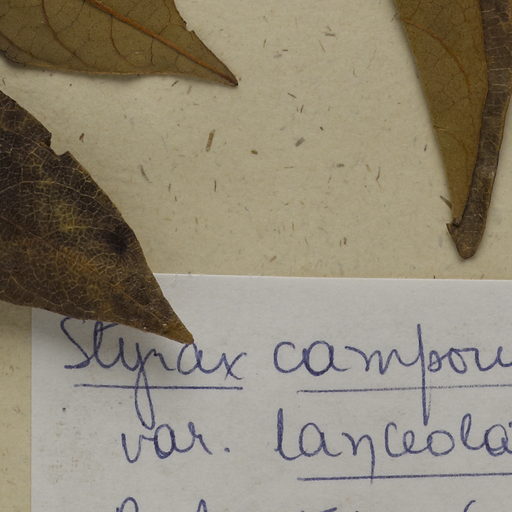 Styrax campor
var. lanceola